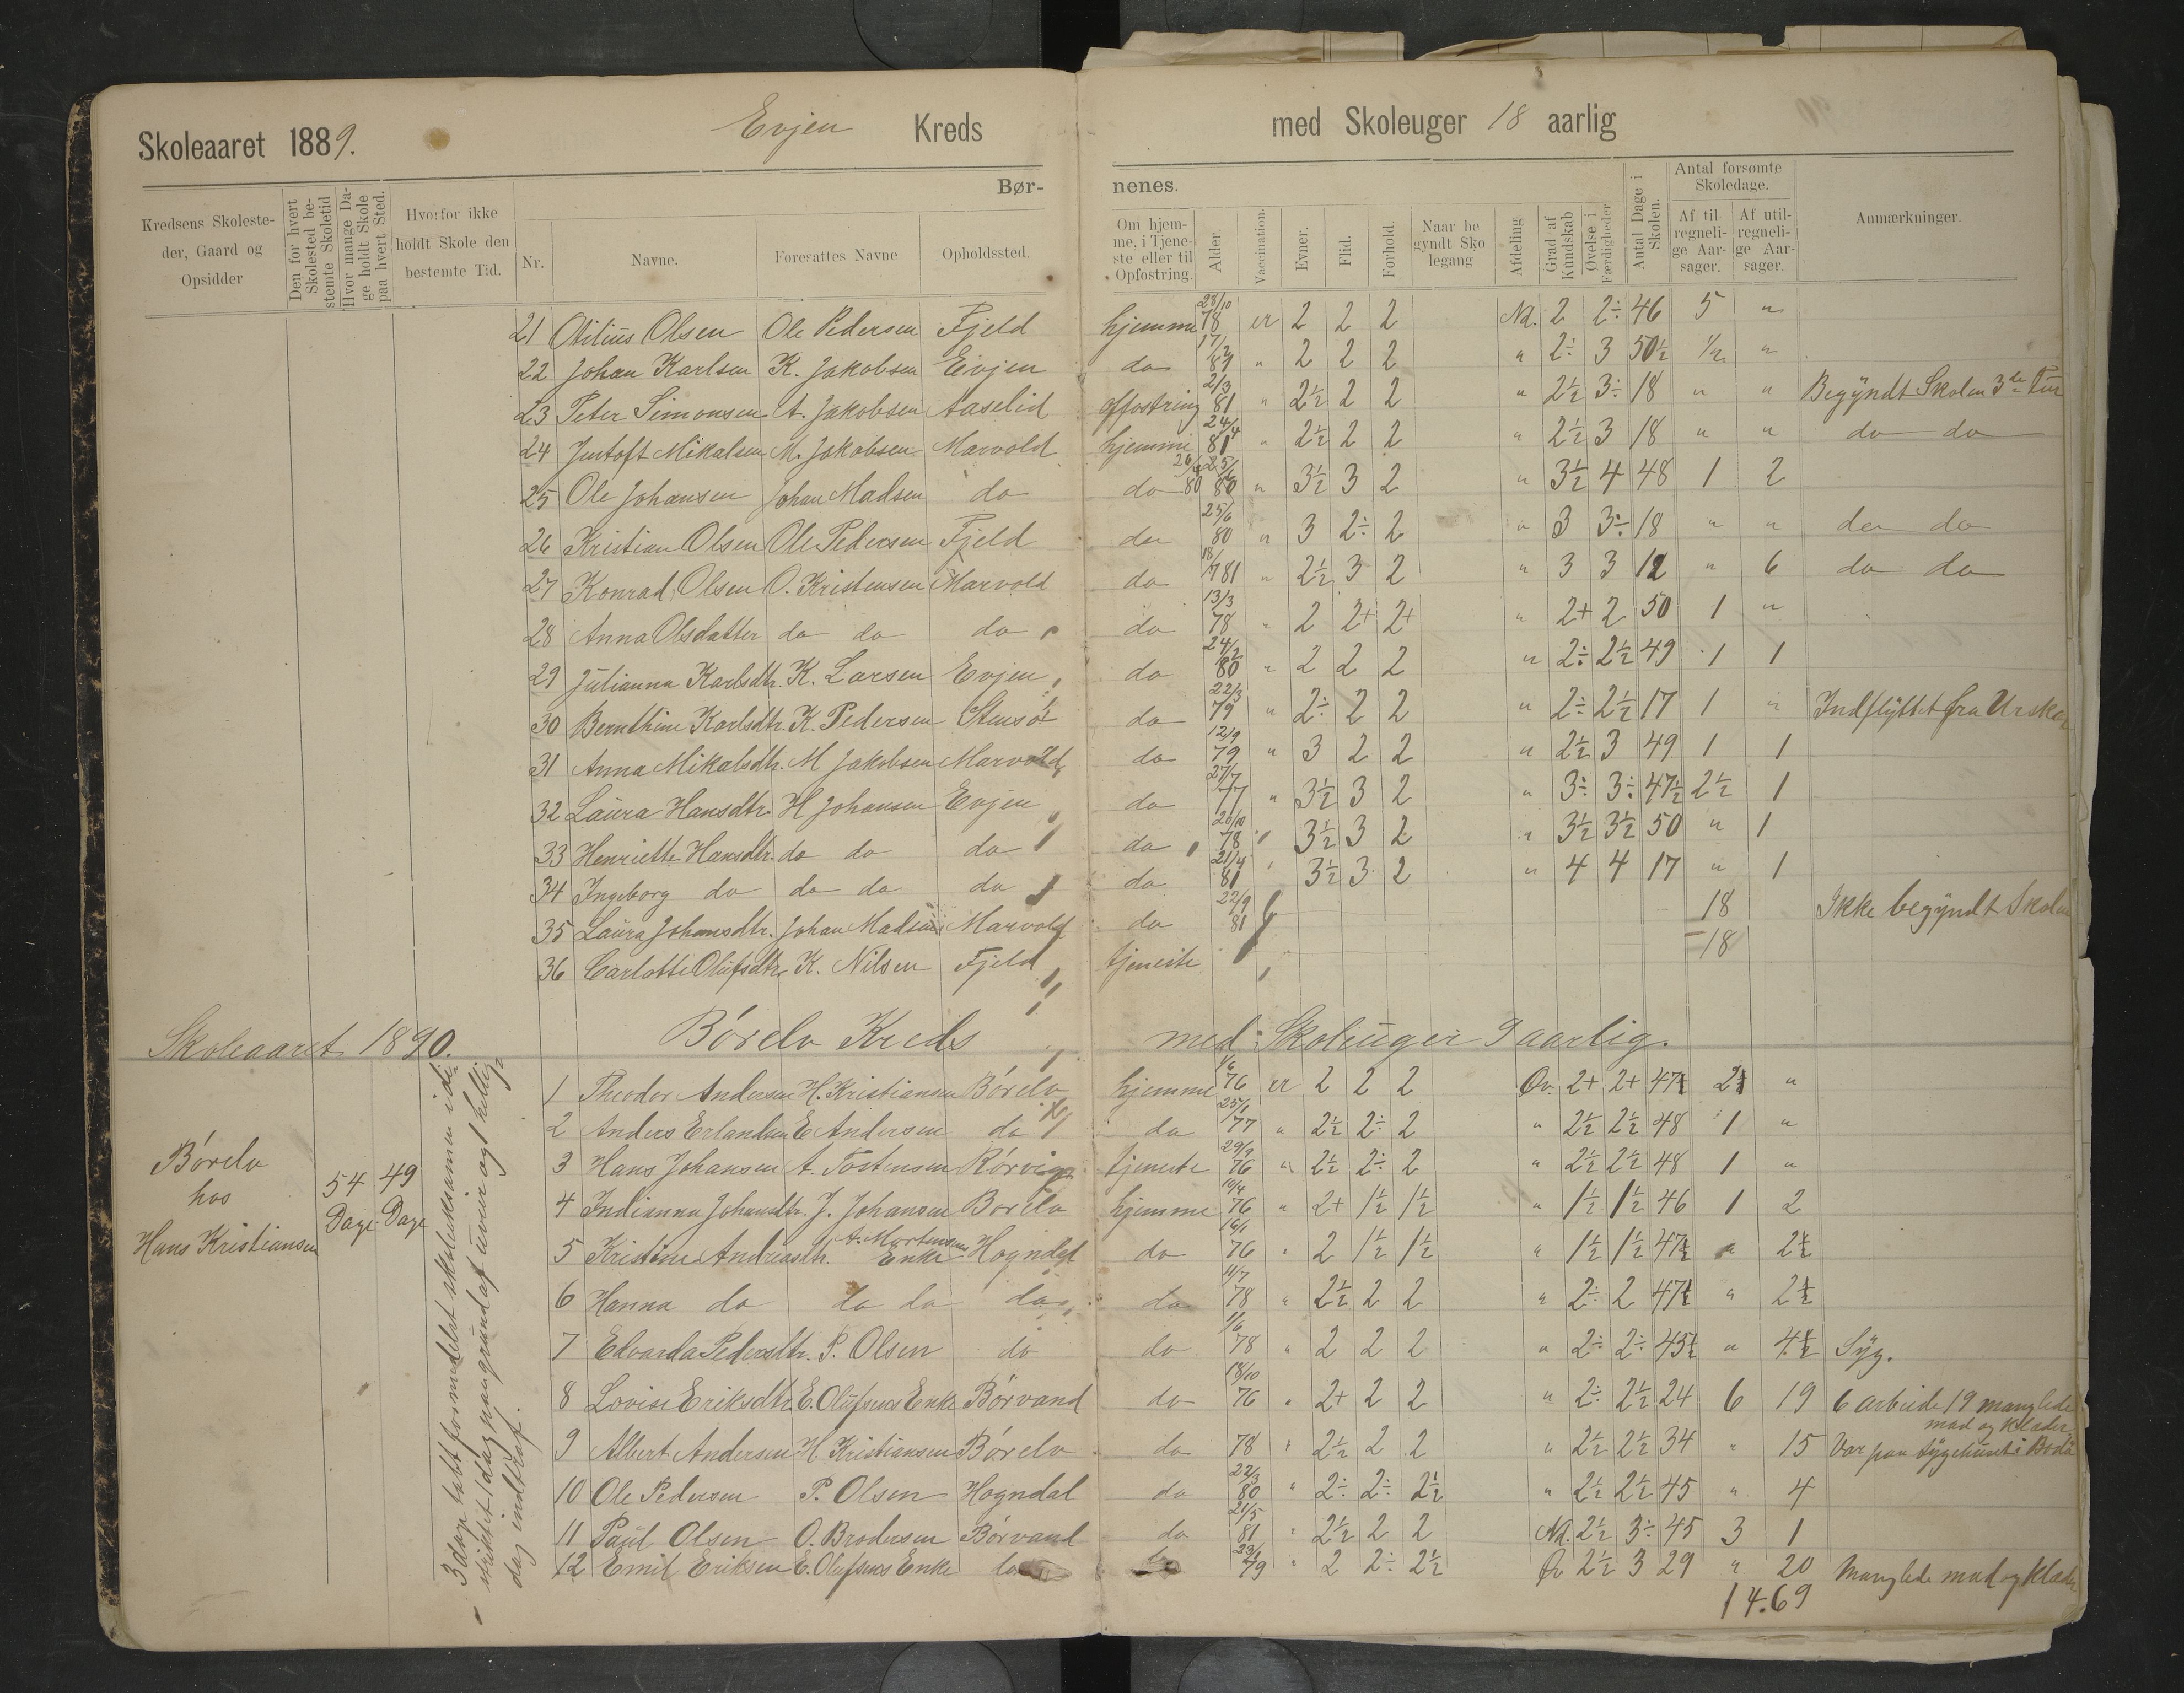 Skoleaaret 1889. Evjen Kreds med Skoleuger 18 aarlig
Bør- nenes.
Kredsens Skoleste-
der, Gaard og
Opsidder
Den for hvert
Skolested be-
stemte Skoletid
Hvor mange Da-
ge holdt Skole
paa hvert Sted.
Hvorfor ikke
holdt Skole den
bestemte Tid.
Nr.
Navne.
Foresattes Navne
Opholdssted.
Om hjem-
me, i Tjene-
ste eller til
Opfostring.
Alder.
Vaccination.
Evner.
Flid.
Forhold.
Naar be
gyndt Sko
legang
Afdeling
Grad af
Kundskab
Øvelse i
Færdigheder
Antal Dage i
Skolen.
Antal forsømte
Skoledage.
Af til-
regneli-
ge Aar-
sager.
Af util-
regneli-
ge Aar-
sager.
Anmærkninger.
21 Otilius Olsen Ole Pedersen Fjeld hjemme 28/10 78 er 2 2 2 Nd. 2 2÷ 46 5 "
22 Johan Karlsen K. Jakobsen Evjen do " 2 2 2 " 2÷ 3 50½ ½ "
23 Peter Simonsen A. Jakobsen Aaselid opfostring 2/3 81 " 2½ 2 2 " 2½ 3÷ 18 " " Begyndt Skolen 3de Tur
24 Justoft Mikalsen M. Jakobsen Marvold hjemme 24/4 81 " 2½ 2 2 " 2½ 3 18 " " do do
25 Ole Johansen Johan Madsen do do 80 " 3½ 3 2 " 3½ 4 48 1 2
26 Kristian Olsen Ole Pedersen Fjeld do 25/6 80 " 3 2÷ 2 " 3 3÷ 18 " " do do
27 Konrad Olsen O. Kristensen Marvold do 18/7 81 " 2½ 3 2 " 3 3 12 " 6 do do
28 Anna Olsdatter do do do do 13/3 78 " 2 2+ 2+ " 2+ 2 50 1 "
29 Julianna Karlsdtr. K. Larsen Evjen do 24/2 80 " 2 2 2 " 2÷ 2½ 49 1 1
30 Bernthine Karlsdtr. K. Pedersen Stensøt do 22/3 79 " 2÷ 2 2 " 2÷ 2½ 17 1 " Indflyttet fra
31 Anna Mikalsdtr. M Jakobsen Marvold do 12/9 79 " 3 2 2 " 2½ 3 49 1 1
32 Laura Hansdtr. H Johansen Evjen do 27/7 77 " 3½ 3 2 " 3÷ 3÷ 47½ 2½ 1
33 Henriette Hansdtr. do do do do 20/10 78 " 3½ 3 2 " 3½ 3½ 50 " 1
34 Ingeborg do do do do do 21/4 81 " 3½ 3 2 " 4 4 17 " 1
35 Laura Johansdtr. Johan Madsen Marvold do 22/9 81 18 Ikke begyndt Skolen
36 Carlotte Olufsdtr. K. Nilsen Fjeld tjeneste 18
Skoleaaret 1890. Børelv Kreds med Skoleuger 9 aarlig.
Børelv
hos
Hans Kristiansen
54 Dage
49 Dage
3 dage tabt formedelst skoleeksamen i di-
striktet 1 dag paa grund af uveir og 1 hellig
dag indtraf.
1 Theodor Andersen H. Kristiansen Børelv hjemme 1/6 76 er 2 2 2 Øv. 2+ 2+ 47½ 2½ "
2 Anders Erlandsen E Andersen do do 25/1 77 " 2½ 2÷ 2 " 2½ 2½ 48 1 "
3 Hans Johansen A. Tostensen Rørvig tjeneste 29/9 76 " 2½ 2÷ 2 " 2½ 2½ 48 1 "
4 Indianna Johansdtr. J. Johansen Børelv hjemme 10/4 76 " 2+ 1½ 1½ " 1½ 1½ 46 1 2
5 Kristine Andreasdtr. A. Martensens Enke Hogndal do 16/1 76 " 2 1½ 1½ " 1½ 1½ 47½ " 2½
6 Hanna do do do do do 11/7 78 " 2½ 2 2 " 2÷ 2 47½ " 2½
7 Edvarda Pedersdtr. P. Olsen do do 1/6 78 " 2 2 2 " 2÷ 2÷ 45½ " 4½ Syg.
8 Lovise Eriksdtr. E. Olufsens Enke Børvand do 18/10 76 " 2+ 2 2 " 2÷ 2½ 24 6 19 6 arbeide 19 manglede
mad og klæder
9 Albert Andersen H. Kristiansen Børelv do 78 " 2½ 2 2 " 2½ 2½ 34 " 15 Var paa sygehuset i Bodø
10 Ole Pedersen P. Olsen Hogndal do 22/3 80 " 2÷ 2÷ 2½ " 2½ 2½ 45 " 4
11 Paul Olsen O. Brodersen Børvand do 21/5 81 " 2½ 2 2 Nd. 2½ 3÷ 45 3 1
12 Emil Eriksen E. Olufsens Enke do do 23/1 79 " 2 2÷ 2½ Ø 2½ 3 29 " 20 Manglede mad og klæder
14.69